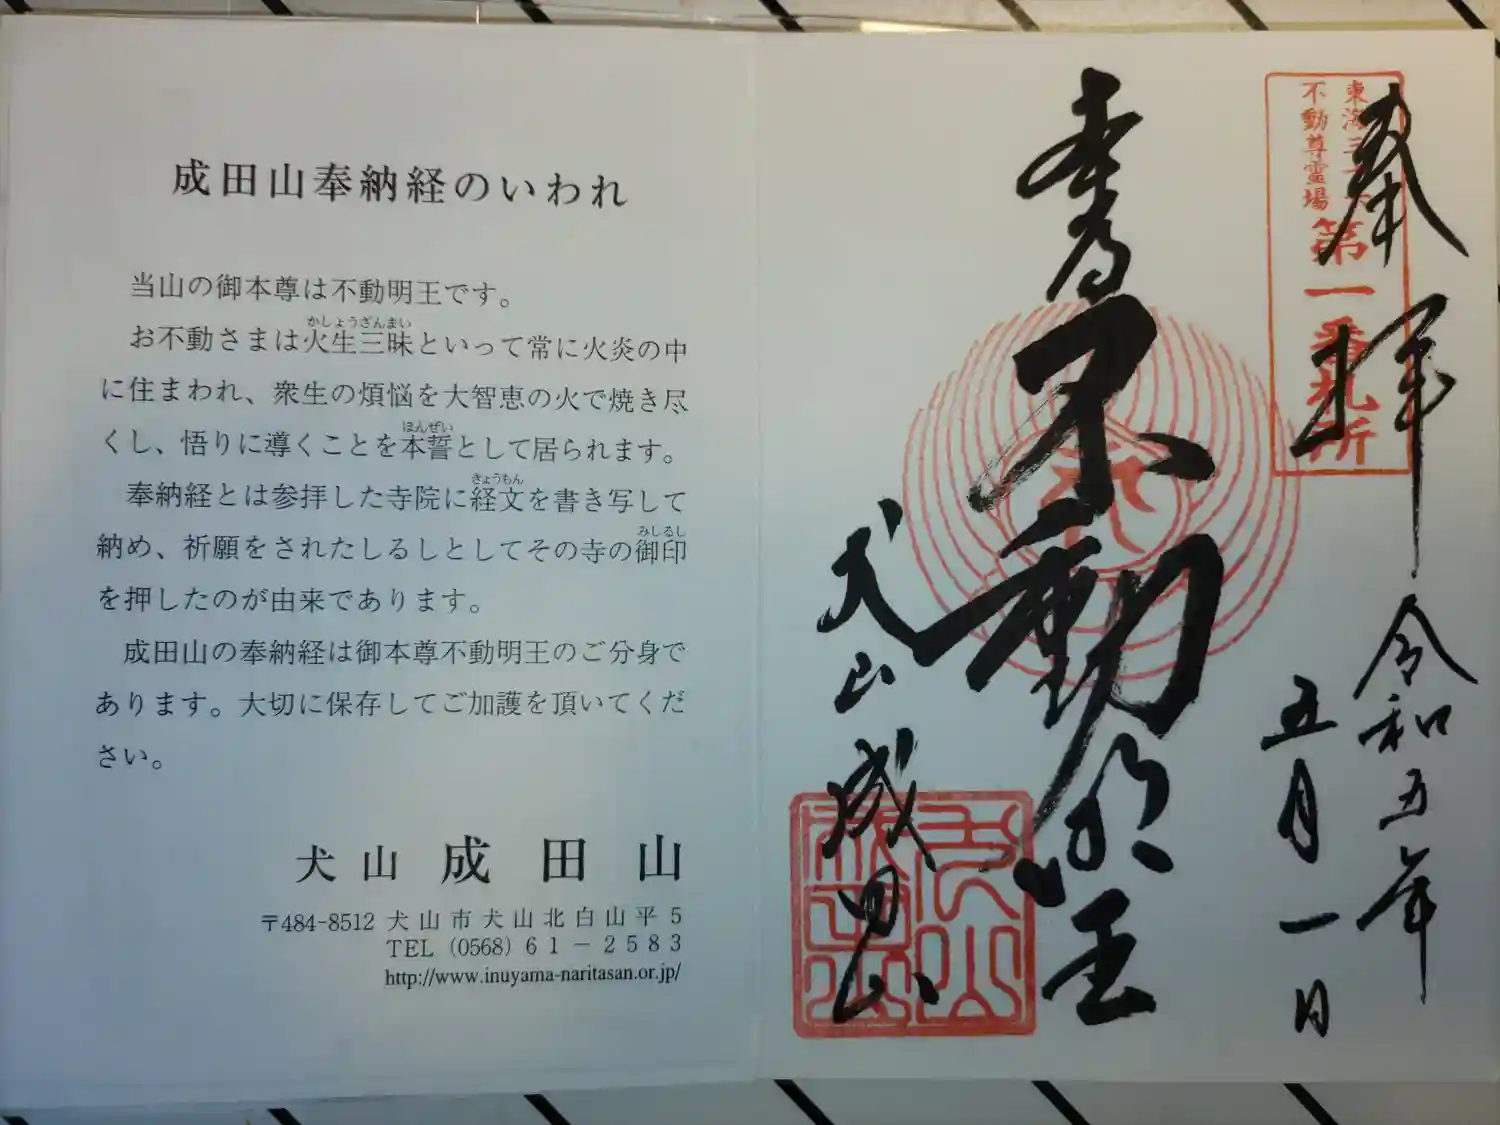 成田山奉納経のいわれ
当山の御本尊は不動明王です。
かしょうざんまい
お不動さまは火生三昧といって常に火炎の中
に住まわれ、衆生の煩悩を大智恵の火で焼き尽
ほんぜい
くし、悟りに導くことを本誓として居られます。
きょうもん
奉納経とは参拝した寺院に経文を書き写して
みしるし
納め、祈願をされたしるしとしてその寺の御印
を押したのが由来であります。
成田山の奉納経は御本尊不動明王のご分身で
あります。大切に保存してご加護を頂いてくだ
さい。
犬山 成田山
〒484-8512 犬山市犬山北白山平5
TEL (0568) 61-2583
http://www.inuyama-naritasan.or.jp/
奉拝
令和五年
五月一日
東海三十六
不動尊霊場
第一番札所
不動明王
犬山成田山